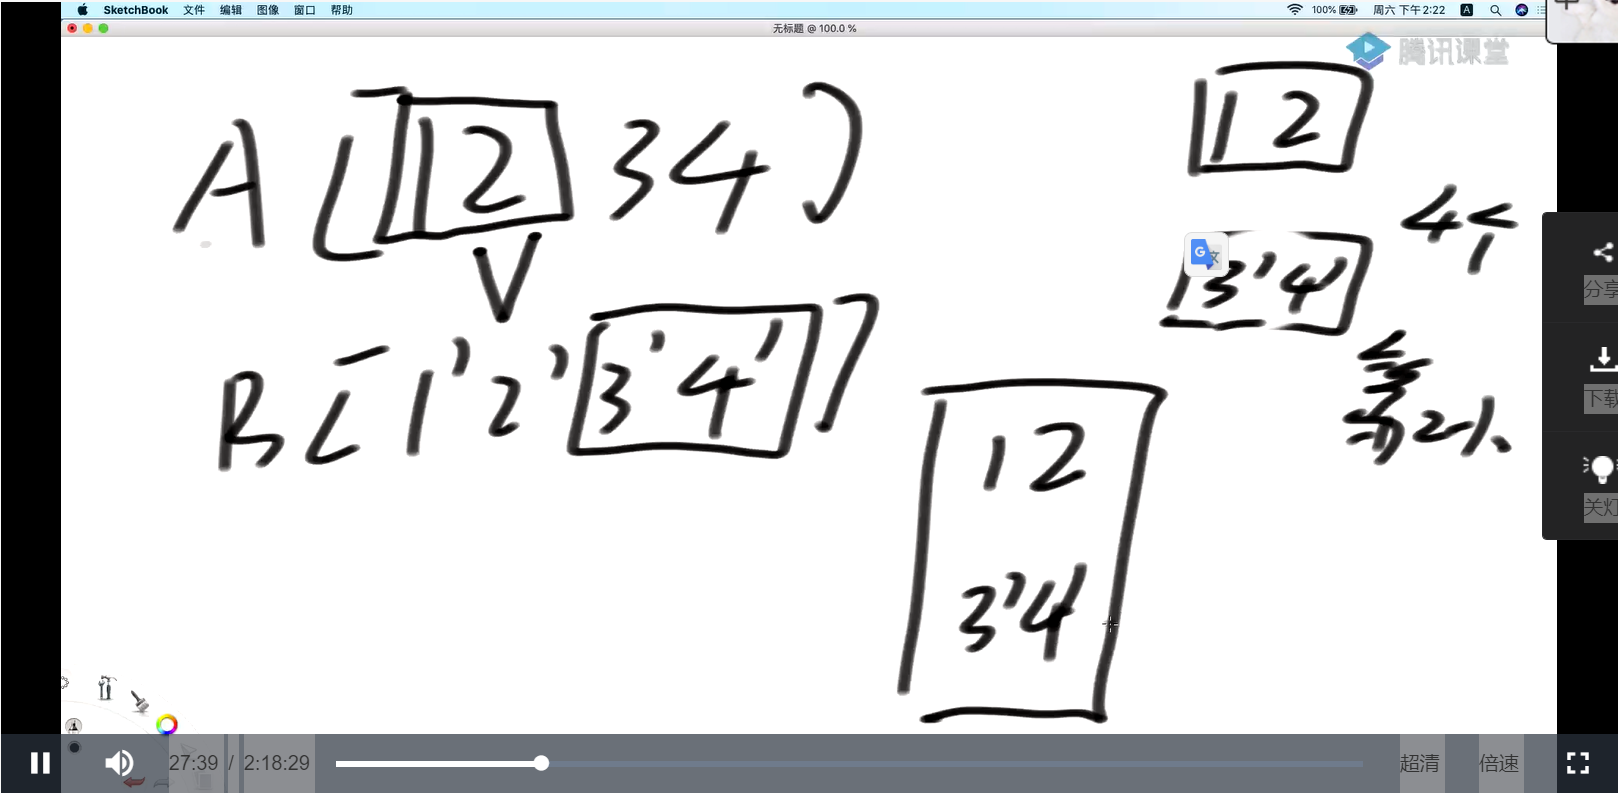 SketchBook 文件 编辑 图像 窗口 帮助
100% 周六 下午2:22 A
无标题 @ 100.0 %
腾讯课堂
A [ 1 2 3 4 ]
1 2
4个
V
3' 4'
B [ 1' 2' 3' 4' ]
第2小
1 2
3' 4'
分享
下载
关灯
27:39 / 2:18:29
超清 倍速